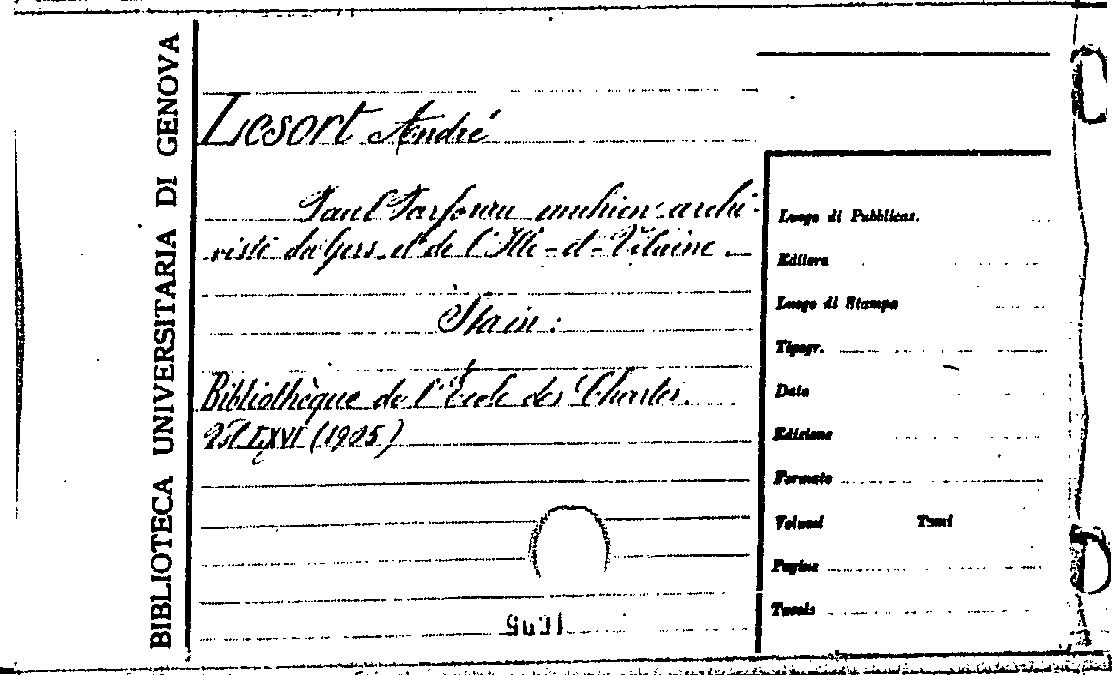 BIBLIOTECA UNIVERSITARIA DI GENOVA
Lesort André
Paul Parfouru ancien archi-
viste du Gers et de l'Ille-et-Vilaine.
Sta in:
Bibliothèque de l'École des Chartes.
Vol LXVI (1905)
Luogo di Pubblicaz.
Editore
Luogo di Stampa
Tipogr.
Data
Edizione
Formato
Volumi Tomi
Pagine
Tavole